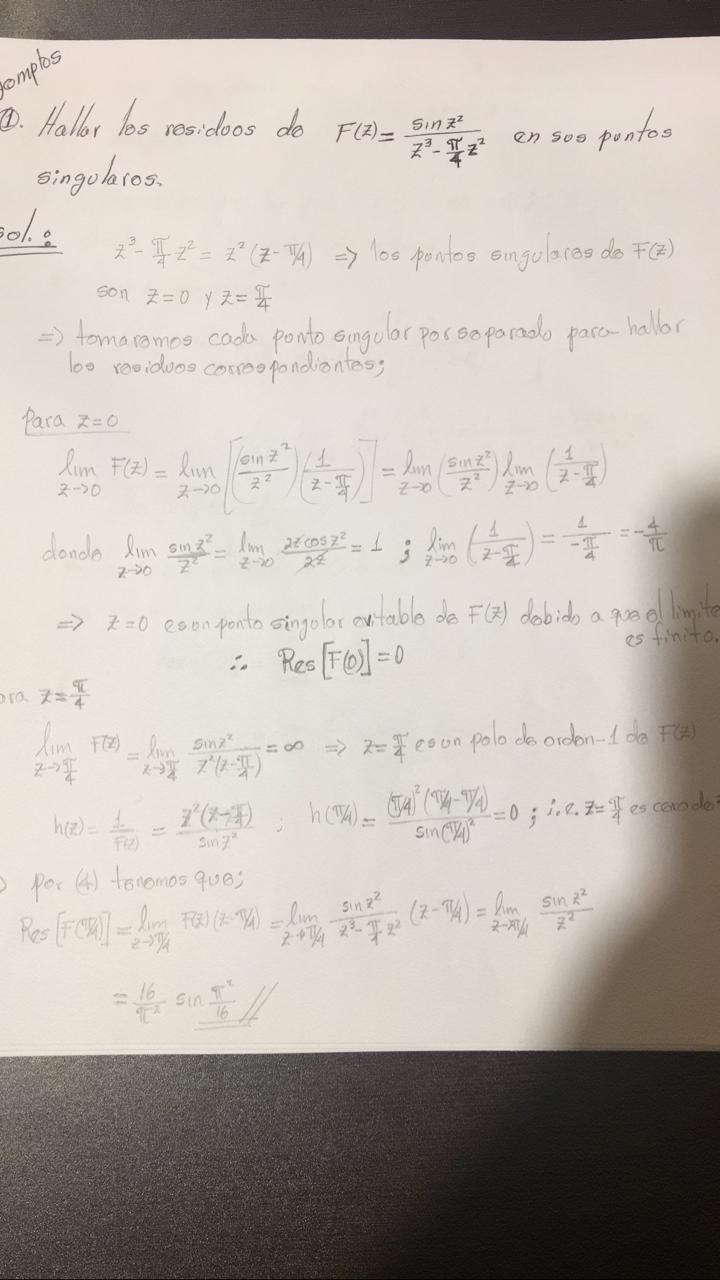 ①. Hallar los residuos de F(z)= sin z² / (z³ - π/4 z²) en sus puntos
singulares.
sol.:
z³ - π/4 z² = z² (z - π/4) => los puntos singulares de F(z)
son z=0 y z= π/4
=> tomaremos cada punto singular por separado para hallar
los residuos correspondientes;
Para z=0
lim z→0 F(z) = lim z→0 [(sin z² / z²)(1 / (z - π/4))] = lim z→0 (sin z² / z²) lim z→0 (1 / (z - π/4))
donde lim z→0 sin z² / z² = lim z→0 2z cos z² / 2z = 1 ; lim z→0 (1 / (z - π/4)) = 1 / (-π/4) = -4/π
=> z=0 es un punto singular evitable de F(z) debido a que el limite
es finito.
∴ Res[F(0)] = 0
z= π/4
lim z→π/4 F(z) = lim z→π/4 sin z² / (z²(z - π/4)) = ∞ => z= π/4 es un polo de orden-1 de F(z)
h(z) = 1 / F(z) = z²(z - π/4) / sin z² ; h(π/4) = (π/4)² (π/4 - π/4) / sin(π/4)² = 0 ; i.e. z= π/4 es cero de
por (4) tenemos que;
Res[F(π/4)] = lim z→π/4 F(z)(z - π/4) = lim z→π/4 sin z² / (z³ - π/4 z²) (z - π/4) = lim z→π/4 sin z² / z²
= 16/π² sin π²/16 //